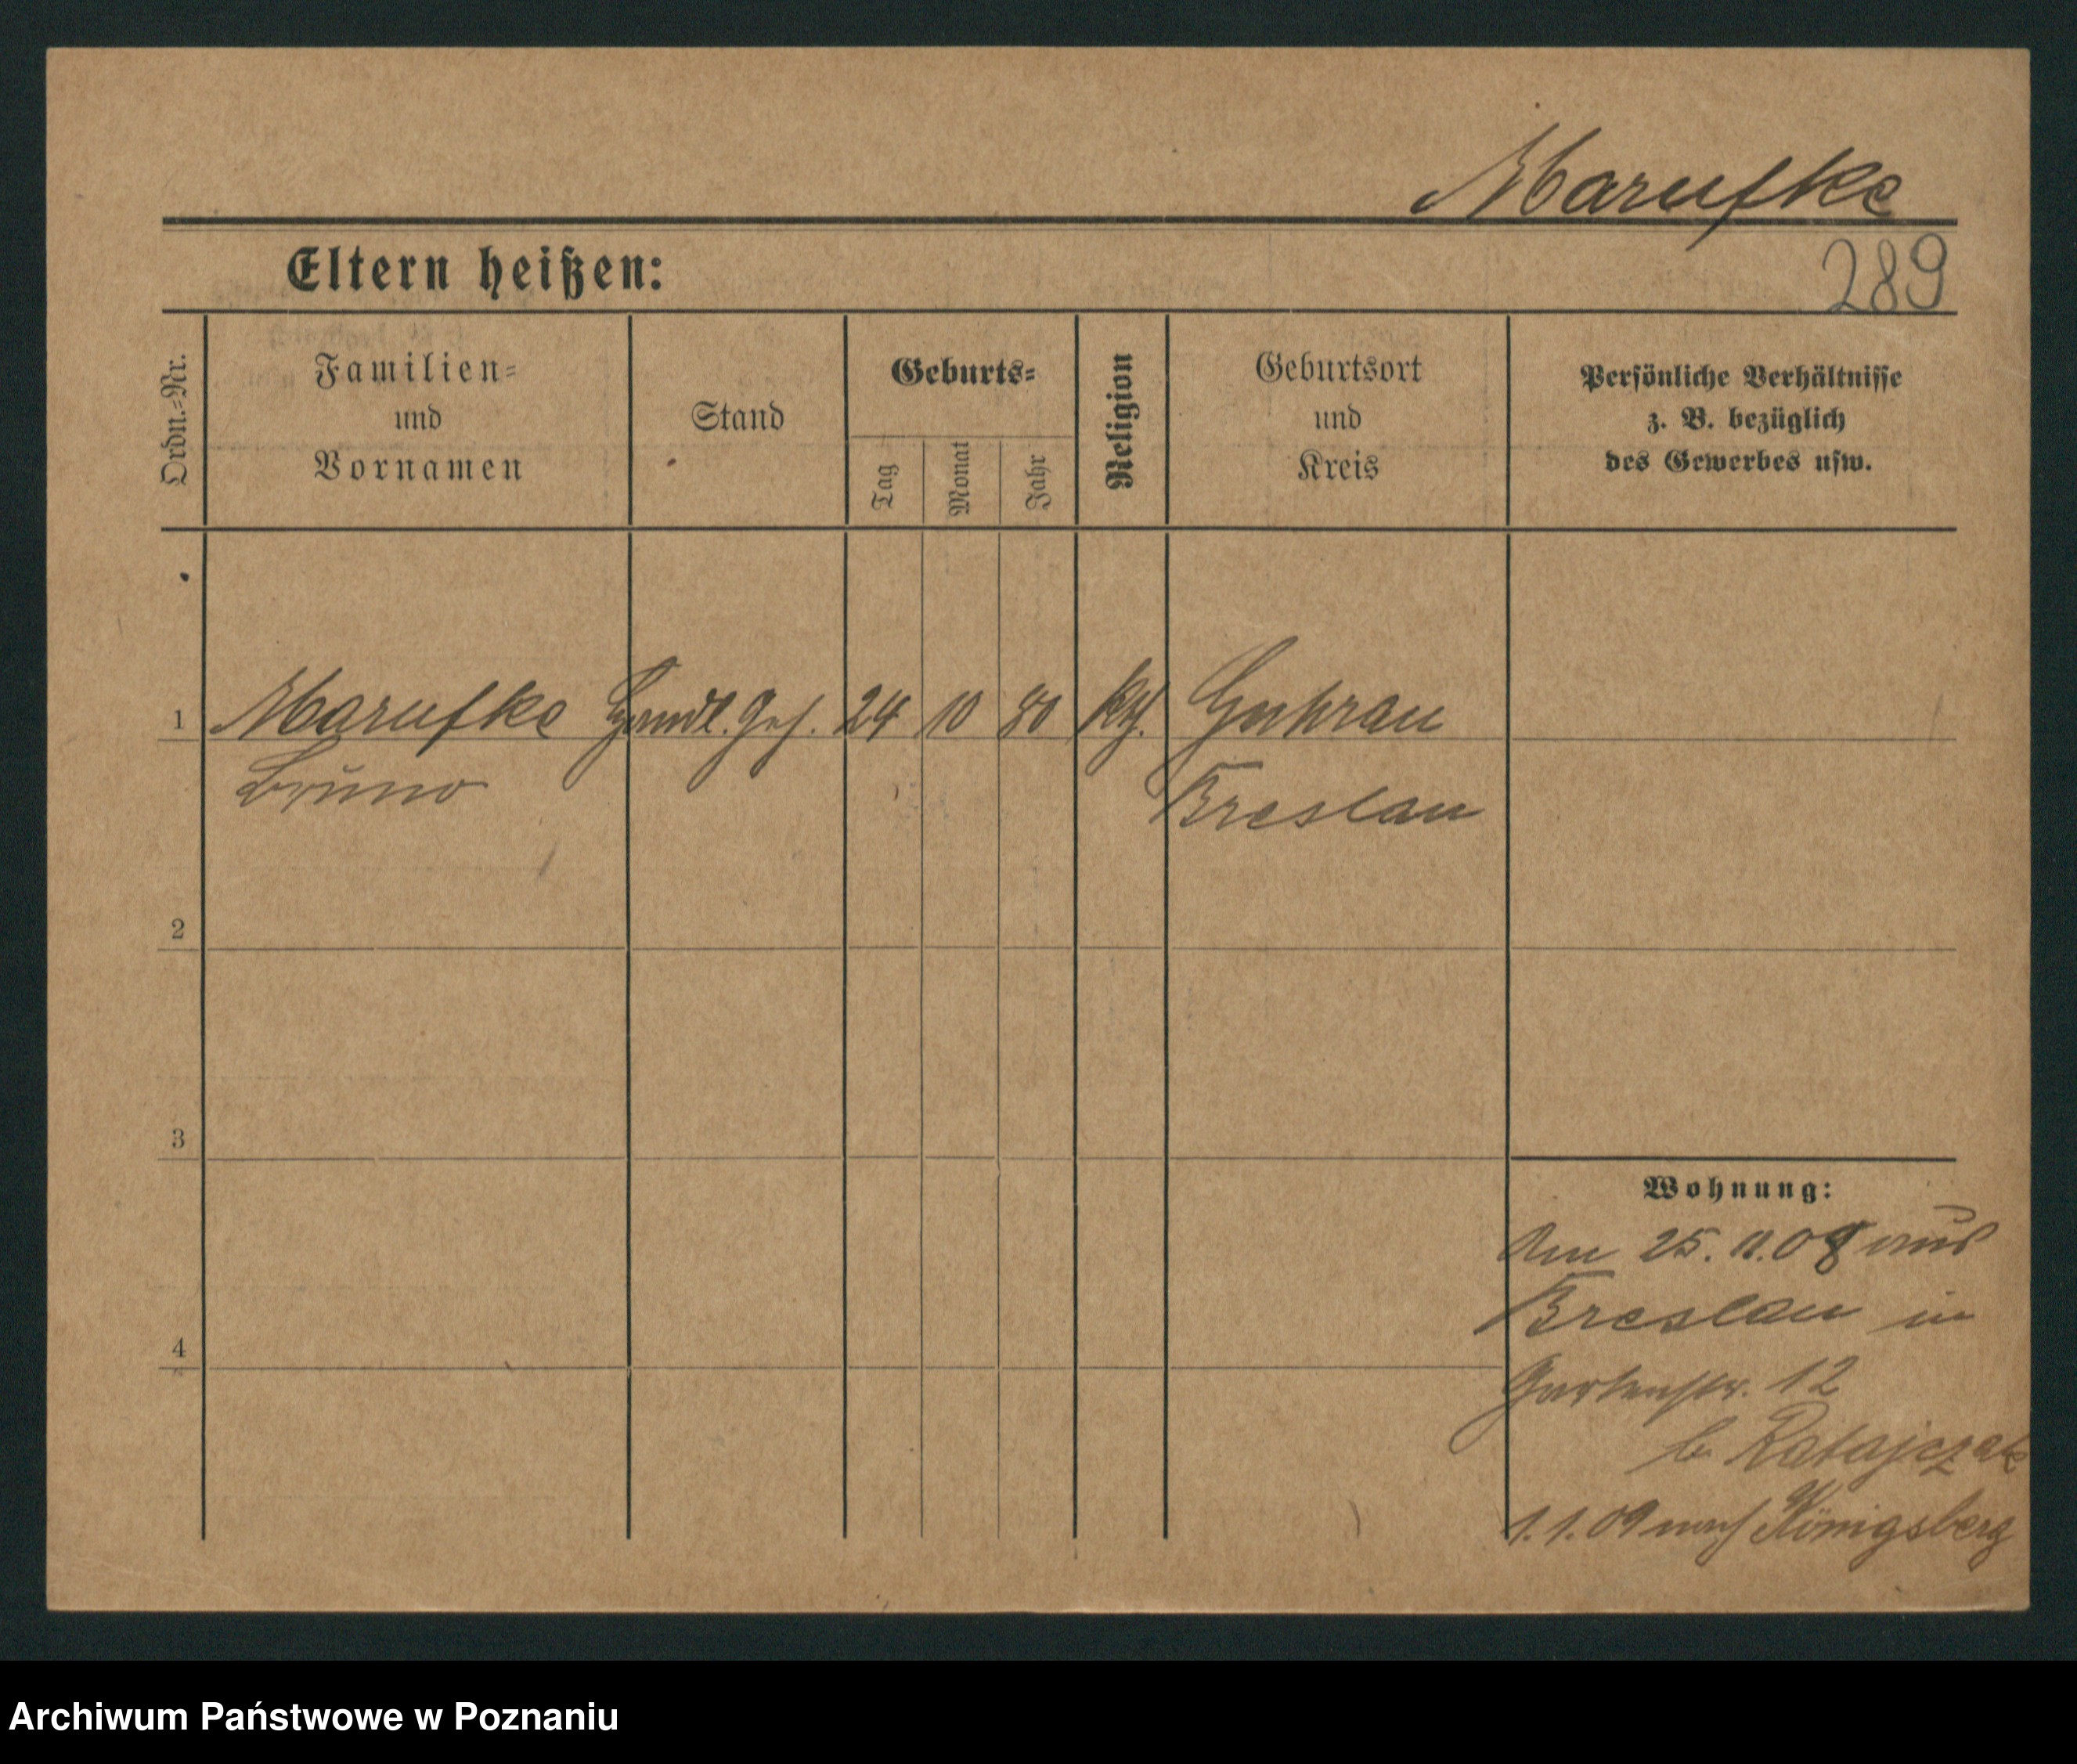 Marufke
289
Eltern heißen:
Ordn.-Nr.
Familien-
und
Vornamen
Stand
Geburts-
Tag
Monat
Jahr
Religion
Geburtsort
und
Kreis
Persönliche Verhältnisse
z. B. bezüglich
des Gewerbes usw.
1 Marufke Handl. Geh. 24 10 80 kth. Guhrau
Bruno Breslau
2
3
4
Wohnung:
Am 25. 11. 08 aus
Breslau in
Gartenstr. 12
b. Ratajczak
1.1.09 nach Königsberg
Archiwum Państwowe w Poznaniu